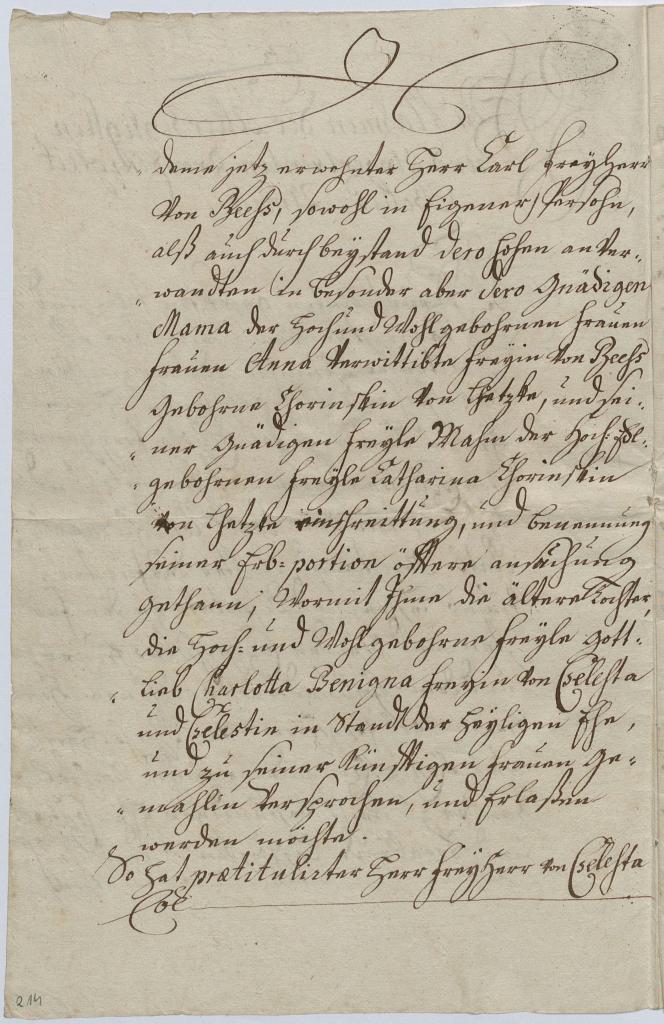 deme jetz erwehnter Herr Carl FreyHerr
Von Beess, sowohl in Eigener Persohn,
alß auch durch beystand dero hohen an Ver-
wandten in besonder aber dero Gnädigen
Mama der Hoch und Wohlgebohrnen Frauen
Frauen Anna Verwittibte Freyin Von Beess
Gebohrne Chorinskin Von Thetzke, und sei-
ner Gnädigen Freyle Mahm der Hoch: Edl-
gebohrnen Freyle Catharina Chorinskin
von Thetzke einschreittung, und benennung
seiner Erb-portion öfftere ansuchung
gethann, Wormit Ihme die ältere Tochter,
die Hoch- und Wohlgebohrne Freyle Gott-
lieb Charlotta Benigna Freyin von Czelesta
und Czelestin in Standt der Heyligen Ehe,
und zu seiner Künfftigen Frauen Ge-
mahlin Versprochen, und Erlaßen
werden möchte.
So hat prætitulirter Herr FreyHerr von Czelesta
214